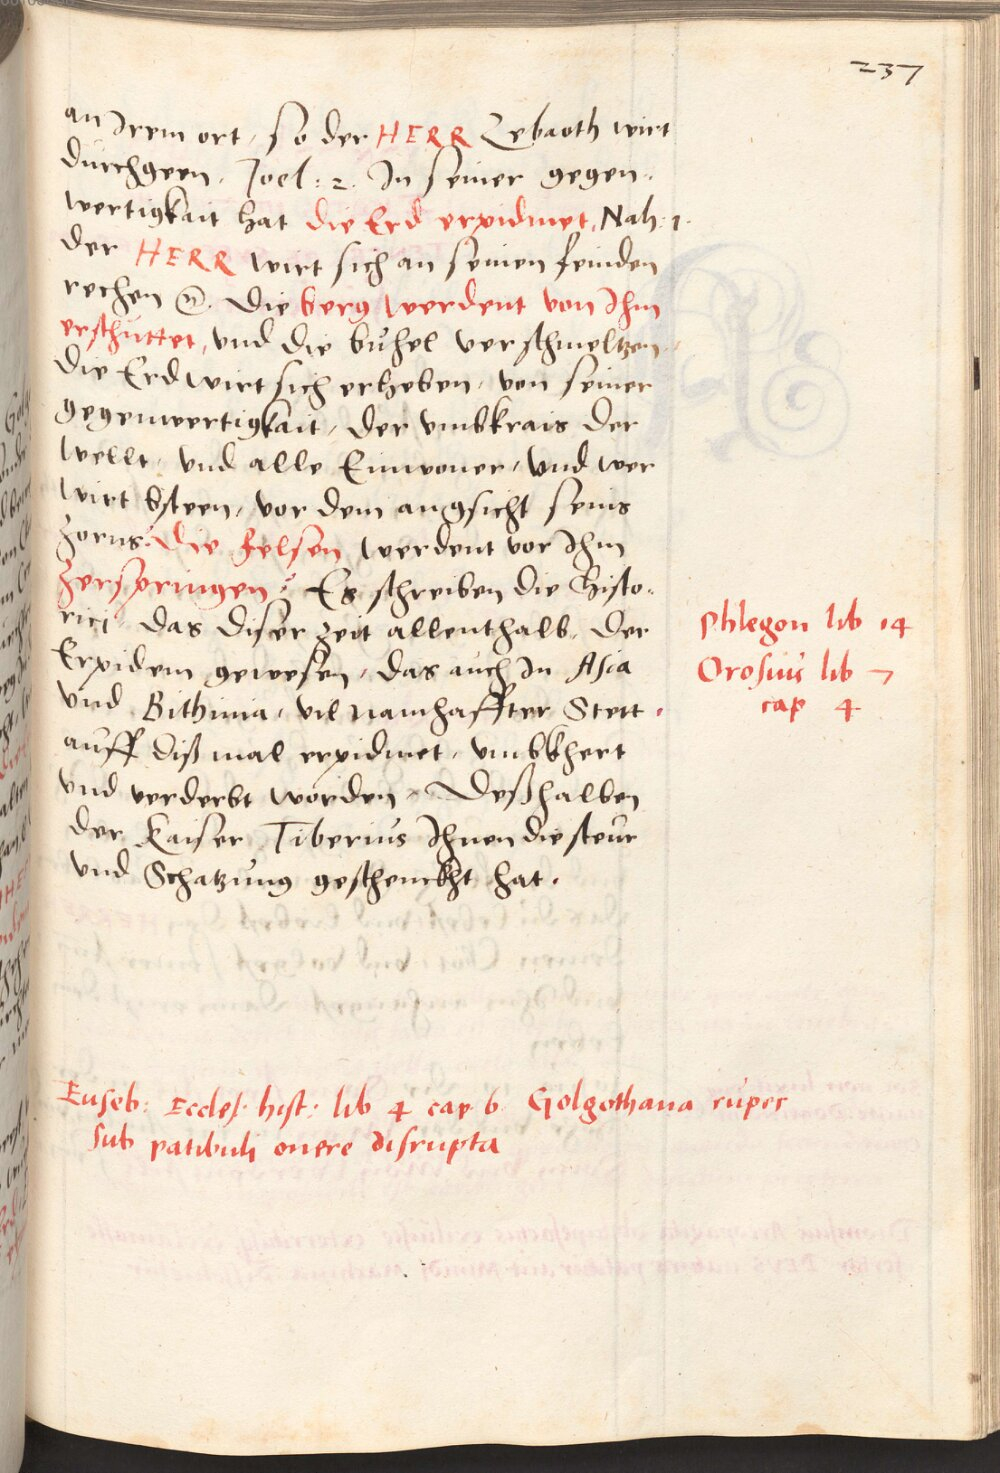 237
an Irem ort, so der HERR Zebaoth wirt
durchgeen. Joel: 2. In seiner gegen-
wertigkait hat die Erd erpidmet, Nah: 1.
der HERR wirt sich an seinen feinden
rechen die berg werdent von Ihm
erschuttet, und die buhel verschmeltzen
die Erd wirt sich erheben, von seiner
gegenwertigkait, der umbkrais der
wellt, und alle Einwoner, und wer
wirt bsteen, vor dem angsicht seins
zorns. Die felsen werdent vor Ihm
zerspringen: Es schreiben die Histo-
rici, das diser zeit allenthalb, der
Erpidem gewesen, das auch In Asia
und Bithinia, vil namhaffter Stett
auff diß mal erpidmet, umbkhert
und verderbt worden, Deßhalben
der Kaiser Tiberius Ihnen die steur
und Schatzung geschenckht hat.
Phlegon lib 14
Orosius lib 7
cap 4
Euseb: Eccles. hist: lib 4 cap 6 Golgothana rupes
sub patibuli onere disrupta